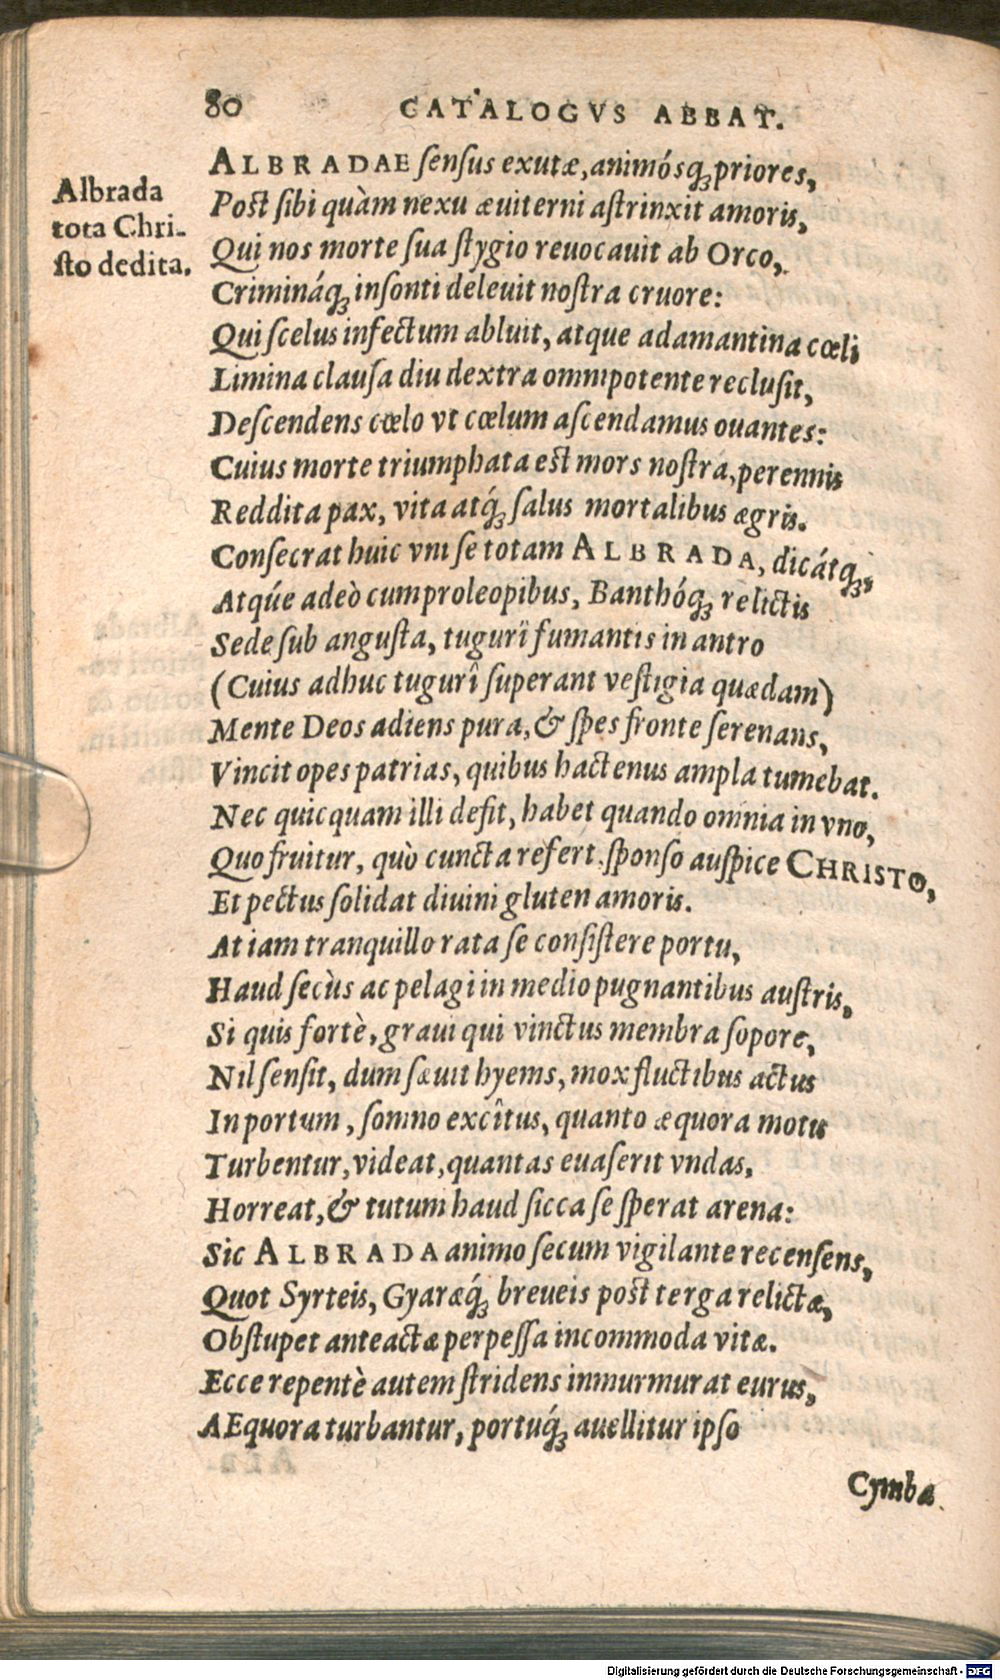 80 CATALOGVS ABBAT.
Albrada
tota Chri-
ſto dedita.
ALBRADAE ſenſus exutæ, animóſq́; priores,
Poſt ſibi quàm nexu æuiterni aſtrinxit amoris,
Qui nos morte ſua ſtygio reuocauit ab Orco,
Crimináq́; inſonti deleuit noſtra cruore:
Qui ſcelus infectum abluit, atque adamantina cœli
Limina clauſa diu dextra omnipotente recluſit,
Deſcendens cœlo vt cœlum aſcendamus ouantes:
Cuius morte triumphata eſt mors noſtra, perennis
Reddita pax, vita atq́; ſalus mortalibus ægris.
Conſecrat huic vni ſe totam ALBRADA, dicátq́;,
Atq́ue adeò cum proleopibus, Banthóq́; relictis
Sede ſub anguſta, tugurî fumantis in antro
(Cuius adhuc tugurî ſuperant veſtigia quædam)
Mente Deos adiens pura, & ſpes fronte ſerenans,
Vincit opes patrias, quibus hactenus ampla tumebat.
Nec quicquam illi defit, habet quando omnia in vno,
Quo fruitur, quò cuncta refert ſponſo auſpice CHRISTO,
Et pectus ſolidat diuini gluten amoris.
At iam tranquillo rata ſe conſiſtere portu,
Haud ſecùs ac pelagi in medio pugnantibus auſtris,
Si quis fortè, graui qui vinctus membra ſopore,
Nil ſenſit, dum ſæuit hyems, mox fluctibus actus
In portum, ſomno excîtus, quanto æquora motu
Turbentur, videat, quantas euaſerit vndas,
Horreat, & tutum haud ſicca ſe ſperat arena:
Sic ALBRADA animo ſecum vigilante recenſens,
Quot Syrteis, Gyaræq́; breueis poſt terga relictæ,
Obſtupet anteactæ perpeſſa incommoda vitæ.
Ecce repentè autem ſtridens inmurmurat eurus,
AEquora turbantur, portuq́; auellitur ipſo
Cymba
Digitalisierung gefördert durch die Deutsche Forschungsgemeinschaft - DFG